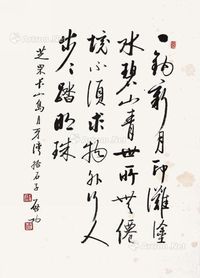 一鈎新月印灘塗
水碧山青世所無僊
境不須求物外行人
步〻踏明珠
芝罘長山島月牙灣拾石子 启功